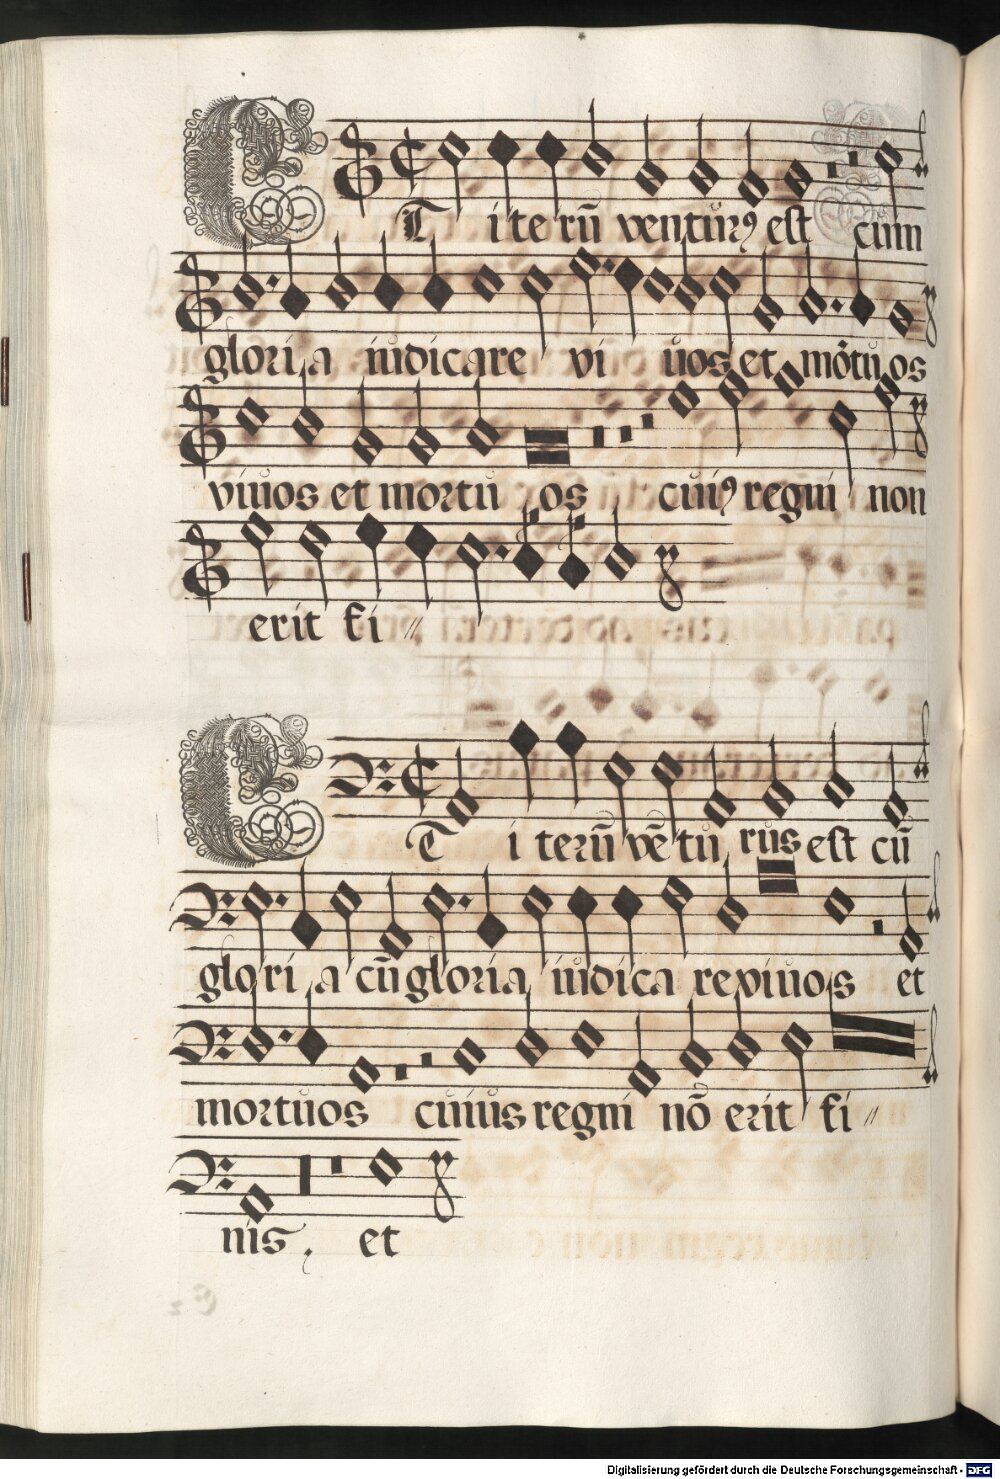 ET iterũ venturꝰ est cum
gloria iudicare vivos et mõtuos
vivos et mortuos cuiꝰ regni non
erit fi〃
ET iterũ vẽturus est cũ
gloria cũ gloria iudicare vivos et
mortuos cuius regni nõ erit fi〃
nis. et
Digitalisierung gefördert durch die Deutsche Forschungsgemeinschaft - DFG